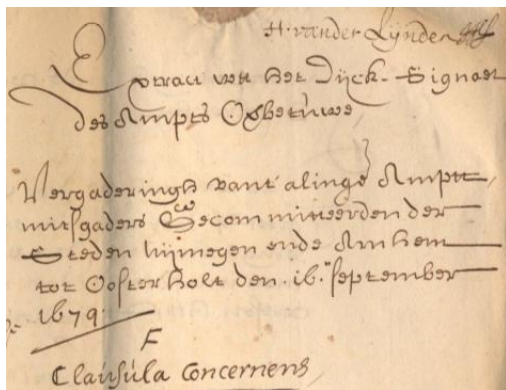 H. vander Lÿnden
Extract wt het Dÿck-Signaet
des Ampts Overbetuwe,
Vergaderingh vant alinge Amptt,
mitsgaders Gecommitteerden der
Steden Nijmegen ende Arnhem
tot Oosterholt den 16.n September
1679
F
Clausula Concernens,